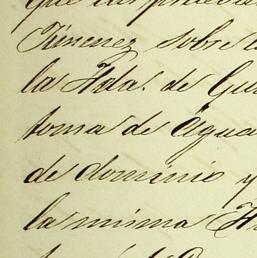 que las
Jimenez sobre
la Hda. de Gu
toma de Agua
de dominio y
la misma H